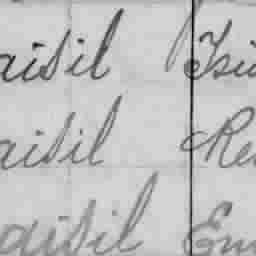 aisil Isi
aisil Re
aisil Em